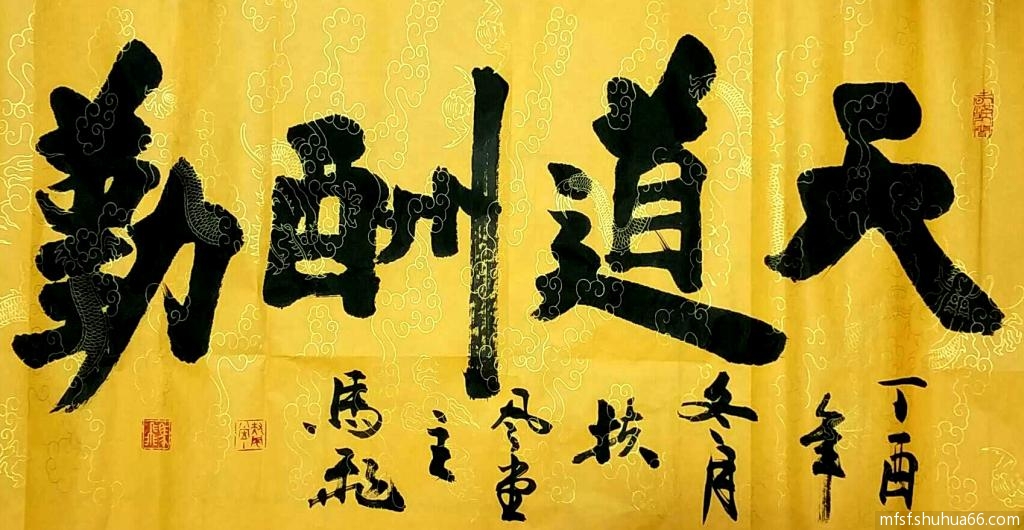 天道酬勤
丁酉
年
冬月
风堂
主
馬飛
mfsf.shuhua66.com